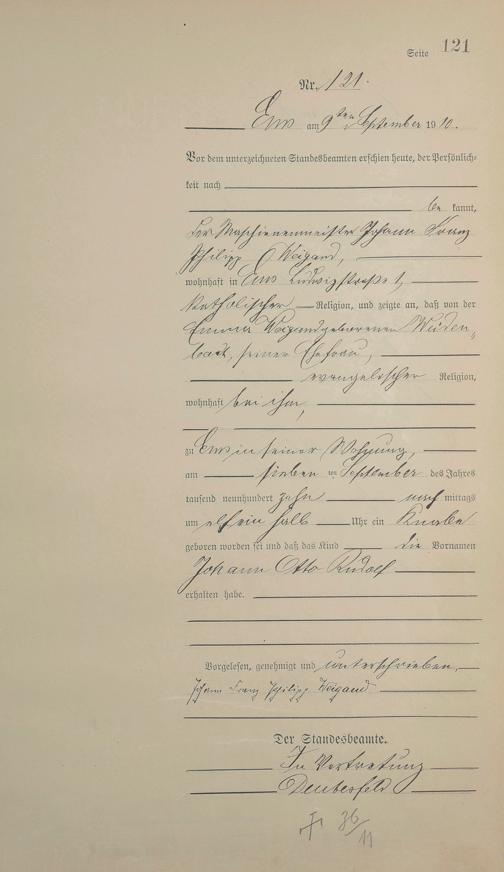 Seite 121
Nr. 121.
Ems am 9ten September 1910.
Vor dem unterzeichneten Standesbeamten erschien heute, der Persönlich-
keit nach
be kannt,
der Maschienenmeister Johann Franz
Philipp Weigand,
wohnhaft in Ems Ludwigstraße 1,
katholischer Religion, und zeigte an, daß von der
Emma Weigand geborenen Weiden-
bach, seiner Ehefrau,
evangelischer Religion,
wohnhaft bei ihm,
zu Ems in seiner Wohnung,
am sieben ten September des Jahres
tausend neunhundert zehn nach mittags
um elf ein halb Uhr ein Knabe
geboren worden sei und daß das Kind die Vornamen
Johann Otto Rudolf
erhalten habe.
Vorgelesen, genehmigt und unterschrieben.
Johann Franz Philipp Weigand
Der Standesbeamte.
In Vertretung
Deubesfeld